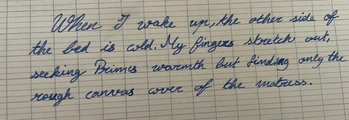 When I wake up, the other side of
the bed is cold. My fingers stretch out,
seeking Prims warmth but finding only the
rough canvas cover of the matress.